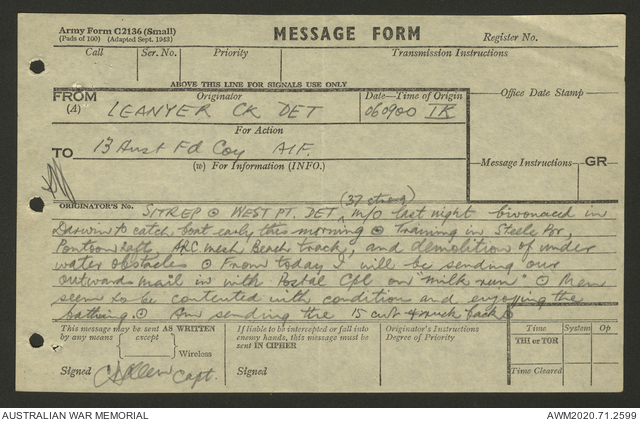 Army Form C2136 (Small)
(Pads of 100) (Adapted Sept. 1943)
MESSAGE FORM
Register No.
Call Ser. No. Priority Transmission Instructions
ABOVE THIS LINE FOR SIGNALS USE ONLY
FROM
(A)
Originator
LEANYER CK DET
Date—Time of Origin
060900 IK
Office Date Stamp
For Action
TO
13 Aust Fd Coy AIF.
(w) For Information (INFO.)
Message Instructions GR
ORIGINATOR'S No.
(37 strong)
SITREP ⊙ WEST PT. DET m/o last night bivouaced in
Darwin to catch boat early this morning ⊙ Training in Steele
Pontoon Raft ARC mesh Beach track, and demolition of under
water obstacles ⊙ From today I will be sending our
outwards mail in with Postal Cpl on "milk run" ⊙ Men
seem to be contented with condition and enjoying the
bathing. ⊙ Am sending the 15 cwt truck back ⊙
This message may be sent AS WRITTEN
by any means (except) Wireless
Signed Capt.
If liable to be intercepted or fall into
enemy hands, this message must be
sent IN CIPHER
Signed
Originator's Instructions
Degree of Priority
Time System Op
THI or TOR
Time Cleared
AUSTRALIAN WAR MEMORIAL
AWM2020.71.2599